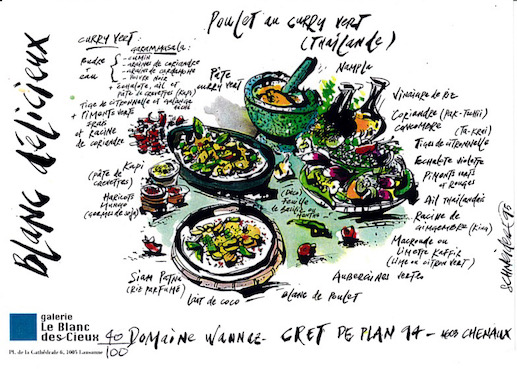 Poulet au curry vert
(Thaïlande)
Blanc délicieux
curry vert:
garam masala:
Poudre
+
eau
- cumin
- graines de coriandre
- graine de cardamome
- poivre noir
+ échalote, ail et
pâte de crevettes (Kapi)
Tige de citronnelle et galanga
+ Piments verts
frais
et racine
de coriandre
Pâte
curry vert
Nampla
Vinaigre de riz
Coriandre (Pak-
concombre
(Ta-Krai)
Tiges de citronnelle
Echalote violette
Piments verts
et rouges
Ail Thaïlandais
Racine de
gingembre (King)
ou
Limette Kaffir
(lime ou citron vert)
Kapi
(Pâte de
crevettes)
Haricots
mungo
(germes de soja)
Déco:
feuille
de basilic
menthe
Siam Patna
(Riz parfumé)
Lait de coco
Blanc de Poulet
Aubergines vertes
Schneider 95
galerie
Le Blanc
des-Cieux
Pl. de la Cathédrale 6, 1005 Lausanne
40
100
Domaine Wannaz - CRET DE PLAN 14 - 1603 CHENAUX